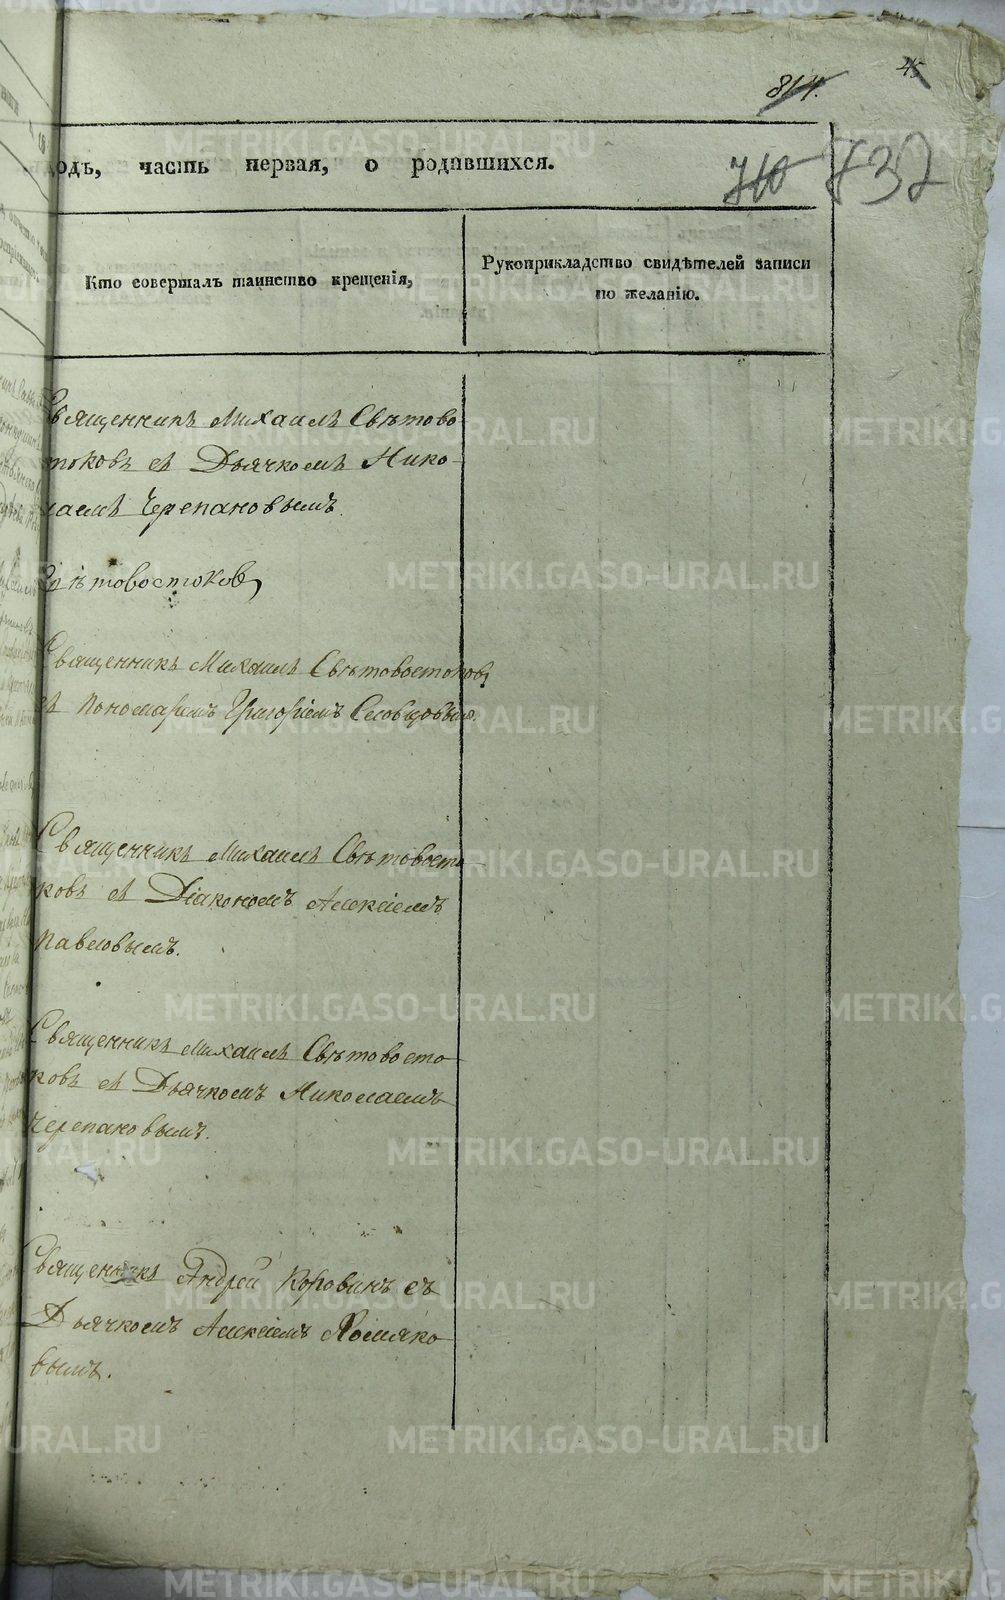 45
814.
710 737
одъ, часть первая, о родившихся.
Кто совершалъ таинство крещенія,
Рукоприкладство свидѣтелей записи
по желанію.
Священникъ Михаилъ Свѣтово-
стоковъ съ Дьячкомъ Нико-
лаемъ Черепановымъ.
Свѣтовостоковъ
Священникъ Михаилъ Свѣтовостоковъ
съ Пономаремъ Григоріемъ Словцовымъ.
Священникъ Михаилъ Свѣтовосто-
ковъ съ Діакономъ Алексіемъ
Павловымъ.
Священникъ Михаилъ Свѣтовосто-
ковъ съ Дьячкомъ Николаемъ
Черепановымъ.
Священникъ Андрей Коровинъ съ
Дьячкомъ Алексіемъ Хомяко-
вымъ.
METRIKI.GASO-URAL.RU